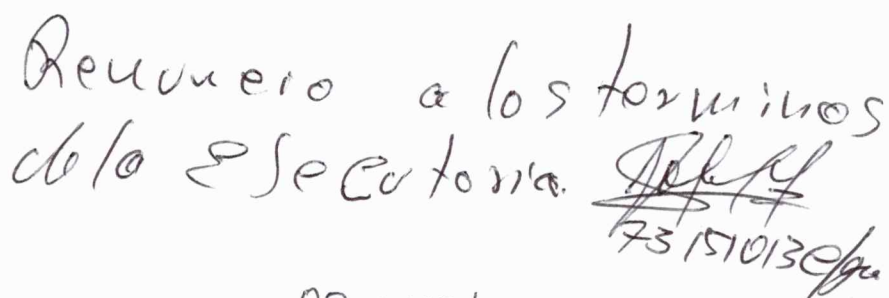 Renuncio a los terminos
de la Esecutoria.
73151013 c/gu